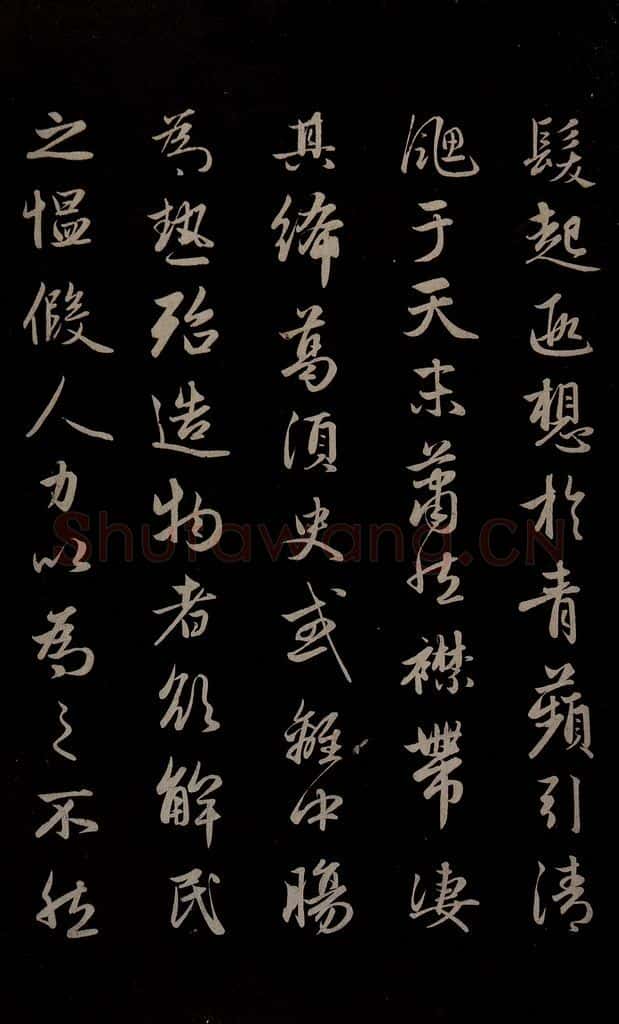 髮起遐想於青蘋引清
颸于天末蕭然襟帶淒
其絺葛須臾或離中暍
為熱殆造物者欲解民
之愠假人力以為之不然
Shufawang.CN